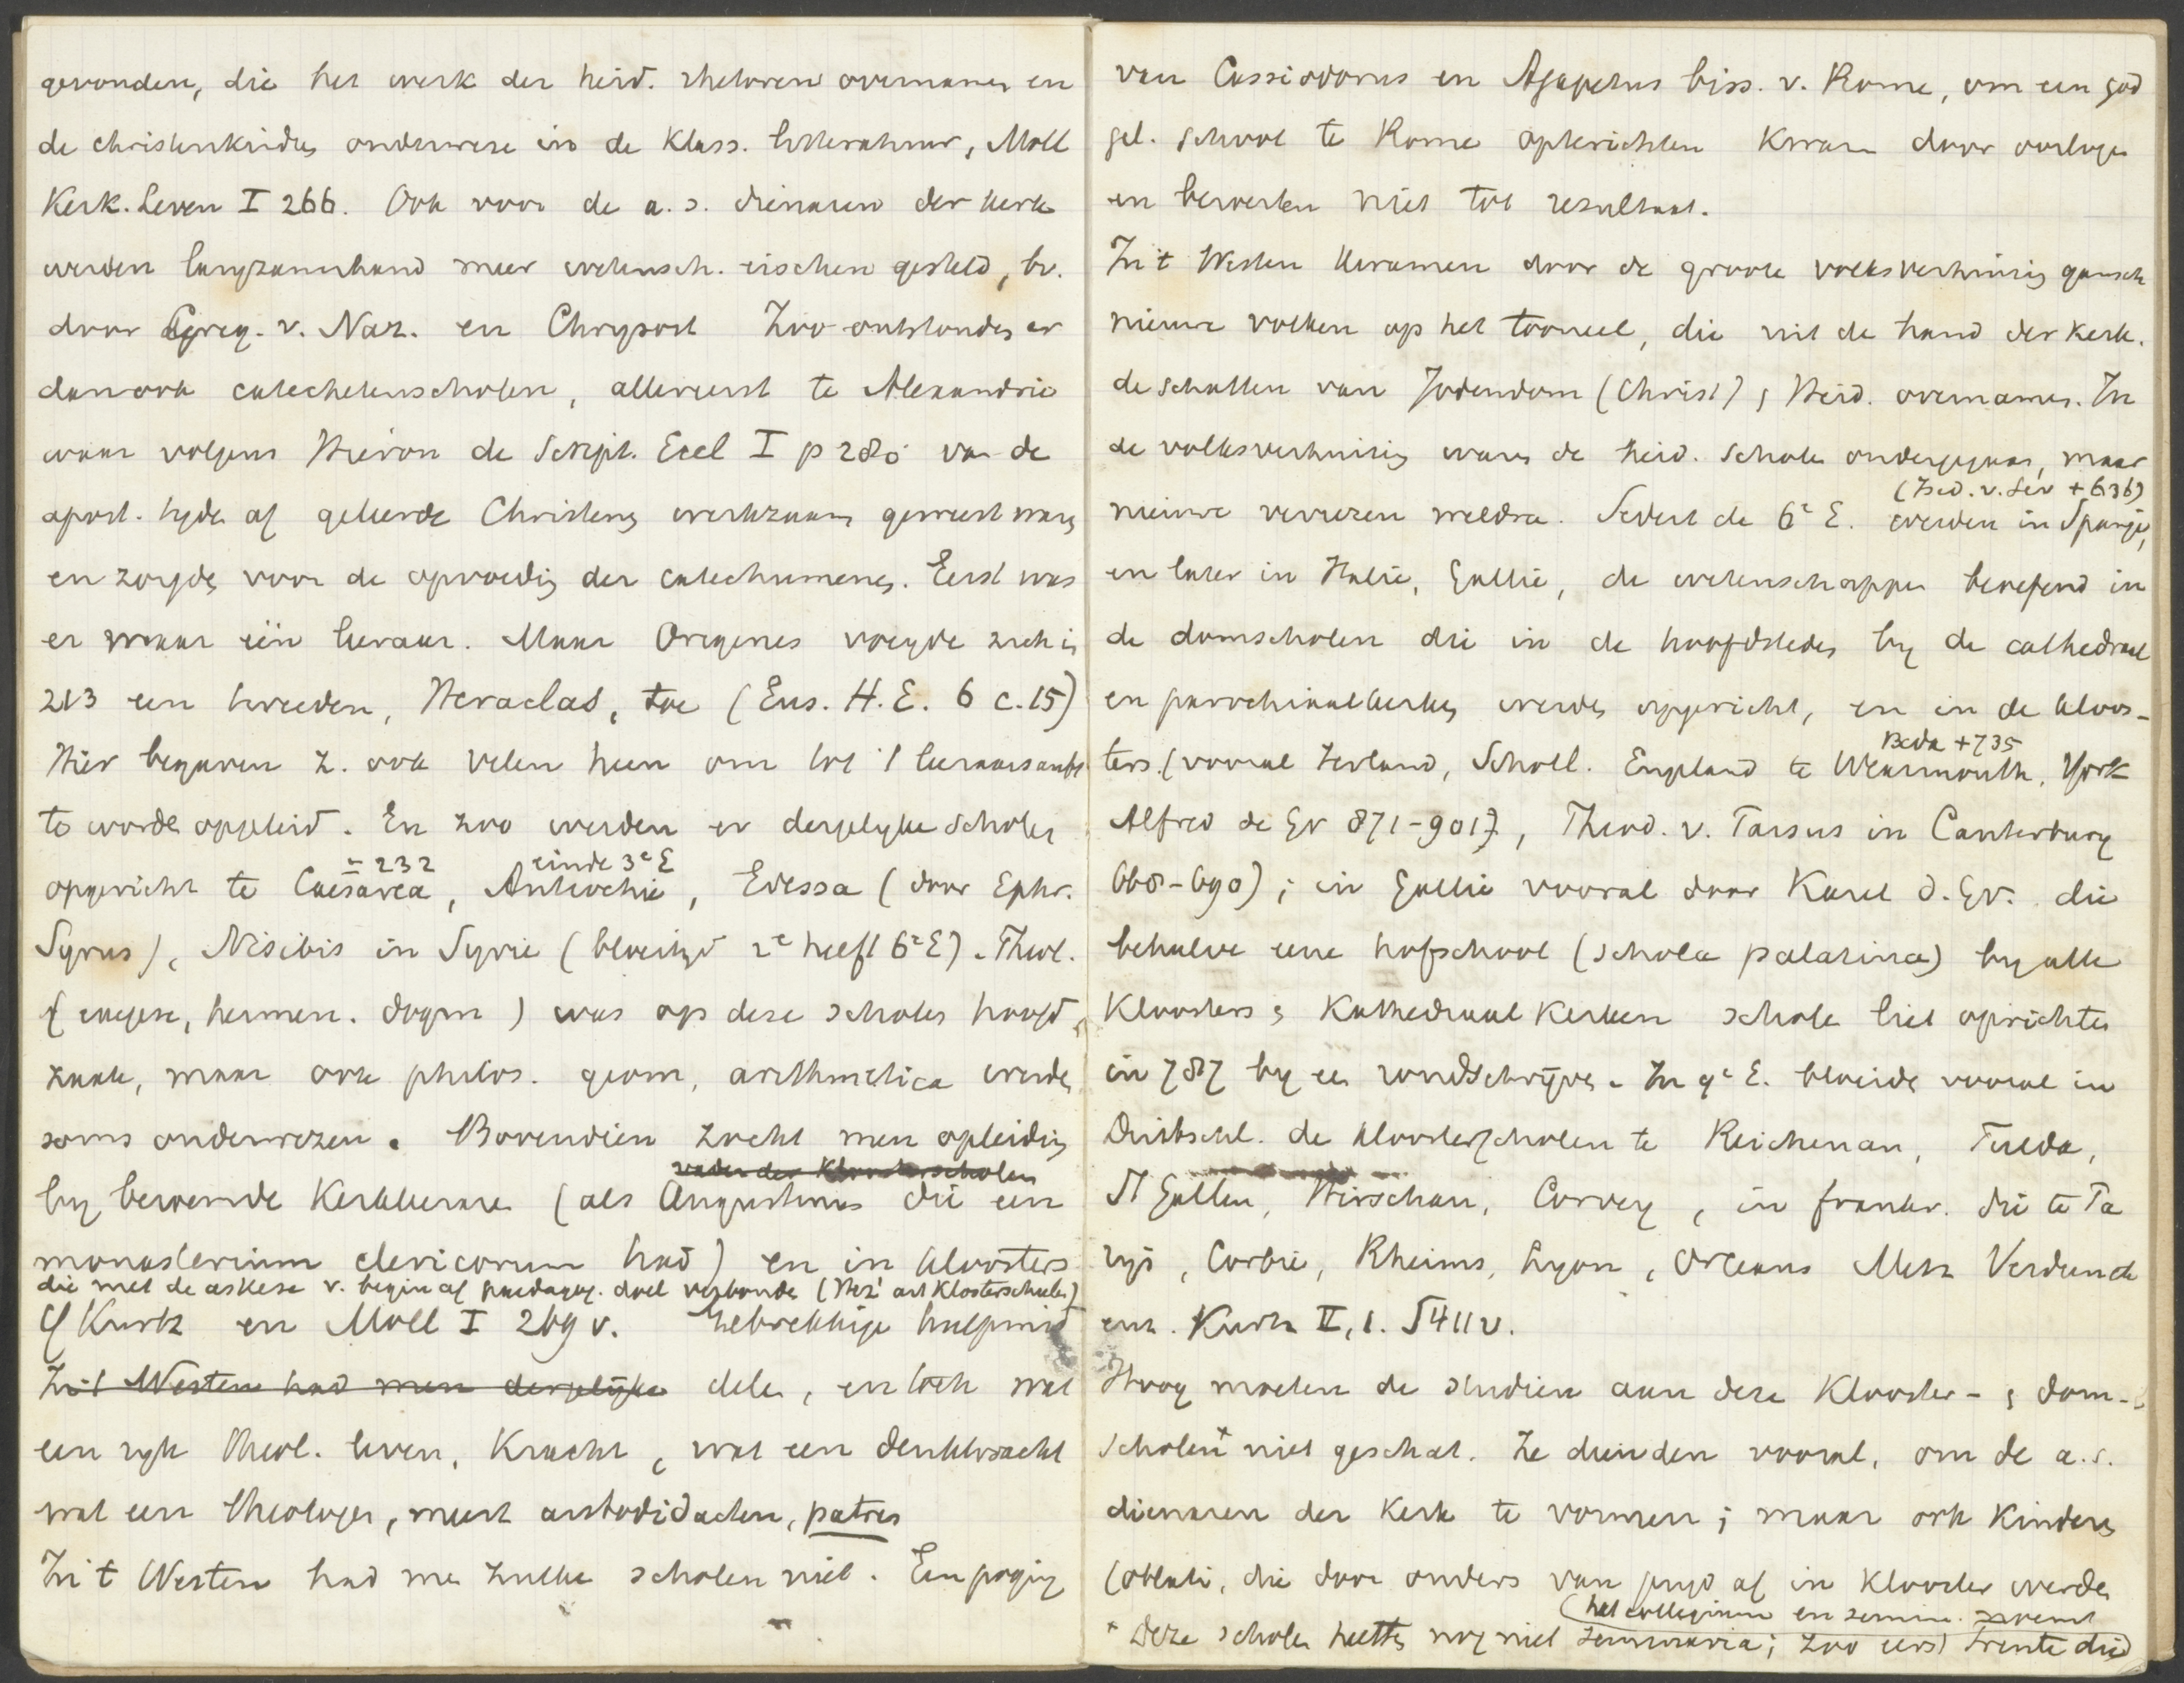 gevonden, die het werk der heid. rhetoren overnamen en
de christenkinders onderwezen in de klass. litteratuur, Moll
Kerk. Leven I 266. Ook voor de a.s. dienaren der kerk
werden langzamerhand meer wetensch. eischen gesteld, bv.
door Greg. v. Naz. en Chrysost Zoo ontstonden er
dan ook catechetenscholen, allereerst te Alexandrie
waar volgens Hieron de Script. Eccl I p 280 van de
apost. tyden af geleerde Christenen werkzaam geweest waren
en zorgden voor de opvoeding der catechumenen. Eerst was
er maar één leeraar. Maar Origenes voegde zich in
213 een tweeden, Heraclas, toe (Eus. H.E. 6 c.15)
Hier begaven z. ook velen heen om tot 't leeraarsambt
te worden opgeleid. En zoo werden er dergelyke scholen
± 232 einde 3e E
opgericht te Caesarea, Antiochie, Edessa (door Ephr.
Syrus), Nisibis in Syrie (bloeityd 2e helft 6e E). Theol.
(exegese, hermen. dogm) was op deze scholen hoofd
zaak, maar ook philos. geom, arithmetica werden
soms onderwezen. Bovendien zocht men opleiding
vader der Kloosterscholen
by beroemde Kerkleeraren (als Augustinus die een
monasterium clericorum had) en in kloosters
die met de askese v. begin af paedagog. doel verbonden (Herz. art Klosterschulen)
Cf Kurtz en Moll I 269 v. Gebrekkige hulpmid
In 't Westen had men dergelijke delen, en toch wat
een ryk theol. leven, Kracht, wat een denkkracht
wat een theologen, meest autodidacten, patres
In 't Westen had men zulke scholen niet. Een poging
van Cassiodorus en Agapetus biss. v. Rome, om een god
gel. school te Rome opterichten kwam door oorlogen
en beroerten niet tot resultaat.
In 't Westen kwamen door de groote volksverhuizing gansch
nieuwe volken op het tooneel, die uit de hand der kerk.
de schatten van Jodendom (Christ) & Heid. overnamen. In
de volksverhuizing waren de heid. scholen ondergegaan, maar
(Isid. v. Sev + 636)
nieuwe verrezen weldra. Sedert de 6e E. werden in Spanje,
en later in Italie, Gallie, de wetenschappen beoefend in
de domscholen die in de hoofdsteden by de cathedraal
en parochiaalkerken werden opgericht, en in de kloos-
Beda +735
ters. (vooral Ierland, Schotl. Engeland te Wearmouth, York
Alfred de Gr 871-901), Theod. v. Tarsus in Canterbury
668-690); in Gallie vooral door Karel d. Gr. die
behalve eene hofschool (schola palatina) by alle
Kloosters & Kathedraal Kerken scholen liet oprichten
in 787 by een rondschrijven. In 9e E. bloeide vooral in
Duitschl. de kloosterscholen te Reichenau, Fulda,
St Gallen, Hirschau, Corvey, in frankr. die te Pa
rijs, Corbie, Rheims, Lyon, Orleans Metz Verdun de
enz. Kurtz II,1. S 411 v.
Hoog moeten de studien aan deze Klooster- & dom-
scholen* niet geschat. Ze dienden vooral, om de a.s.
dienaren der Kerk te vormen; maar ook Kinderen
(oblati, die door ouders van jengd af in Klooster werden
het collegium en semin.
* Deze scholen heetten nog niet seminaria; zoo eerst Trente die